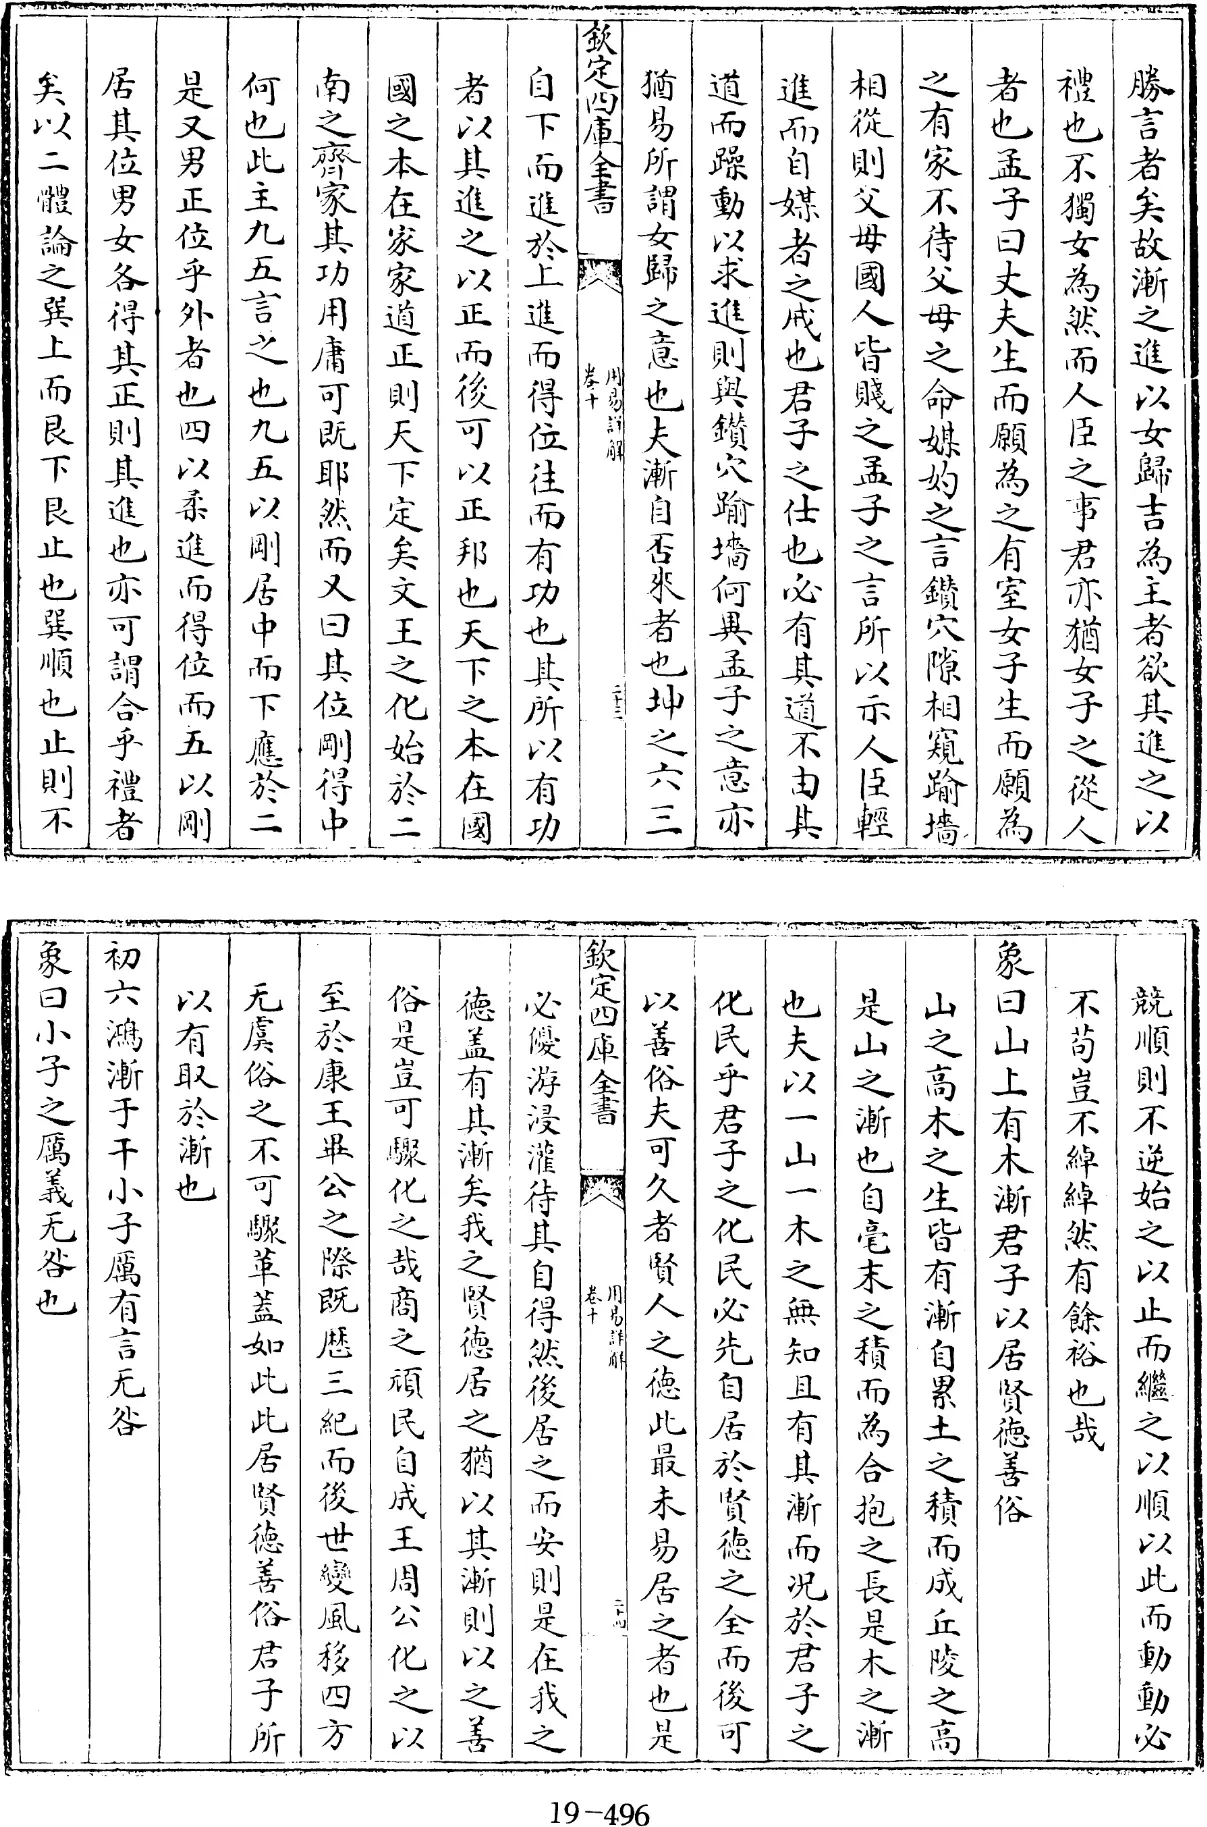 勝言者矣故漸之進以女歸吉為主者欲其進之以
禮也不獨女為然而人臣之事君亦猶女子之從人
者也孟子曰丈夫生而願為之有室女子生而願為
之有家不待父母之命媒妁之言鑽穴隙相窺踰墻
相從則父母國人皆賤之孟子之言所以示人臣輕
進而自媒者之戒也君子之仕也必有其道不由其
道而躁動以求進則與鑽穴踰墻何異孟子之意亦
猶易所謂女歸之意也夫漸自否來者也坤之六三
欽定四庫全書
用易詳解
卷十
二十三
自下而進於上進而得位往而有功也其所以有功
者以其進之以正而後可以正邦也天下之本在國
國之本在家家道正則天下定矣文王之化始於二
南之齊家其功用庸可既耶然而又曰其位剛得中
何也此主九五言之也九五以剛居中而下應於二
是又男正位乎外者也四以柔進而得位而五以剛
居其位男女各得其正則其進也亦可謂合乎禮者
矣以二體論之巽上而艮下艮止也巽順也止則不
競順則不逆始之以止而繼之以順以此而動動必
不茍豈不綽綽然有餘裕也哉
象曰山上有木漸君子以居賢德善俗
山之高木之生皆有漸自累土之積而成丘陵之高
是山之漸也自毫末之積而為合抱之長是木之漸
也夫以一山一木之無知且有其漸而况於君子之
化民乎君子之化民必先自居於賢德之全而後可
以善俗夫可久者賢人之德此最未易居之者也是
欽定四庫全書
用易詳解
卷十
二十四
必優游浸灌待其自得然後居之而安則是在我之
德蓋有其漸矣我之賢德居之猶以其漸則以之善
俗是豈可驟化之哉商之頑民自成王周公化之以
至於康王畢公之際既歷三紀而後世變風移四方
无虞俗之不可驟革蓋如此此居賢德善俗君子所
以有取於漸也
初六鴻漸于干小子厲有言无咎
象曰小子之厲義无咎也
19-496